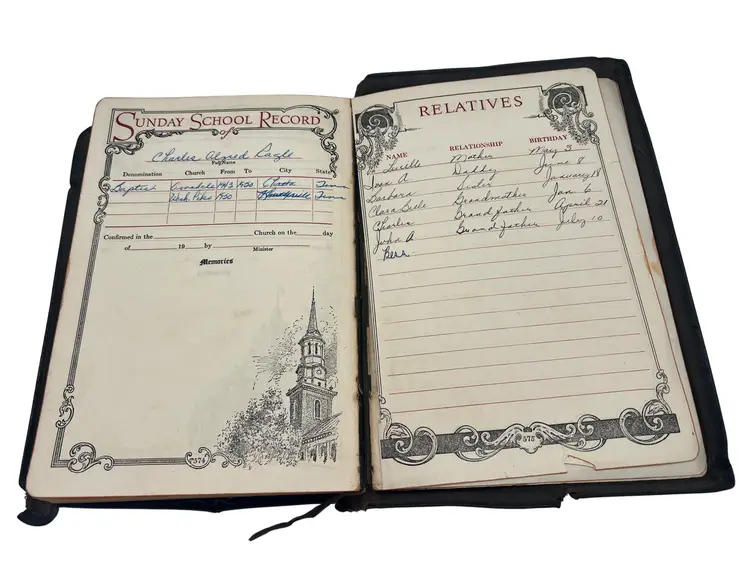 SUNDAY SCHOOL RECORD
of
Charles Alfred Cagle
Full Name
Denomination Church From To City State
Baptist 1943 1950 Tenn
1950 Tenn
Confirmed in the Church on the day
of 19 by
Minister
Memories
574
RELATIVES
NAME RELATIONSHIP BIRTHDAY
Lucille Mother May 3
A Daddy June 8
Barbara Sister January 18
Clara Belle Grandmother Jan. 6
Charlie Grandfather April 21
John A Grandfather July 10
575